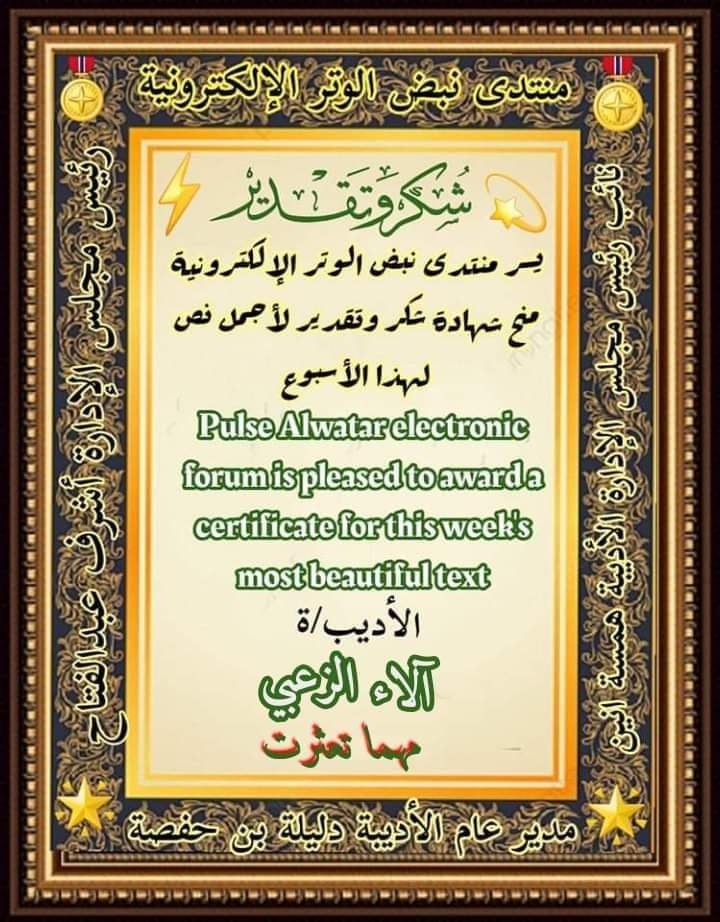 منتدى نبض الوتر الإلكترونية
شكر وتقدير
يسر منتدى نبض الوتر الإلكترونية
منح شهادة شكر وتقدير لأجمل نص
لهذا الأسبوع
Pulse Alwatar electronic
forum is pleased to award a
certificate for this week's
most beautiful text
الأديب/ة
آلاء الزعبي
مهما تعثرت
نائب رئيس مجلس الإدارة الأديبة همسة انين
رئيس مجلس الإدارة أشرف عبدالفتاح
مدير عام الأديبة دليلة بن حفصة